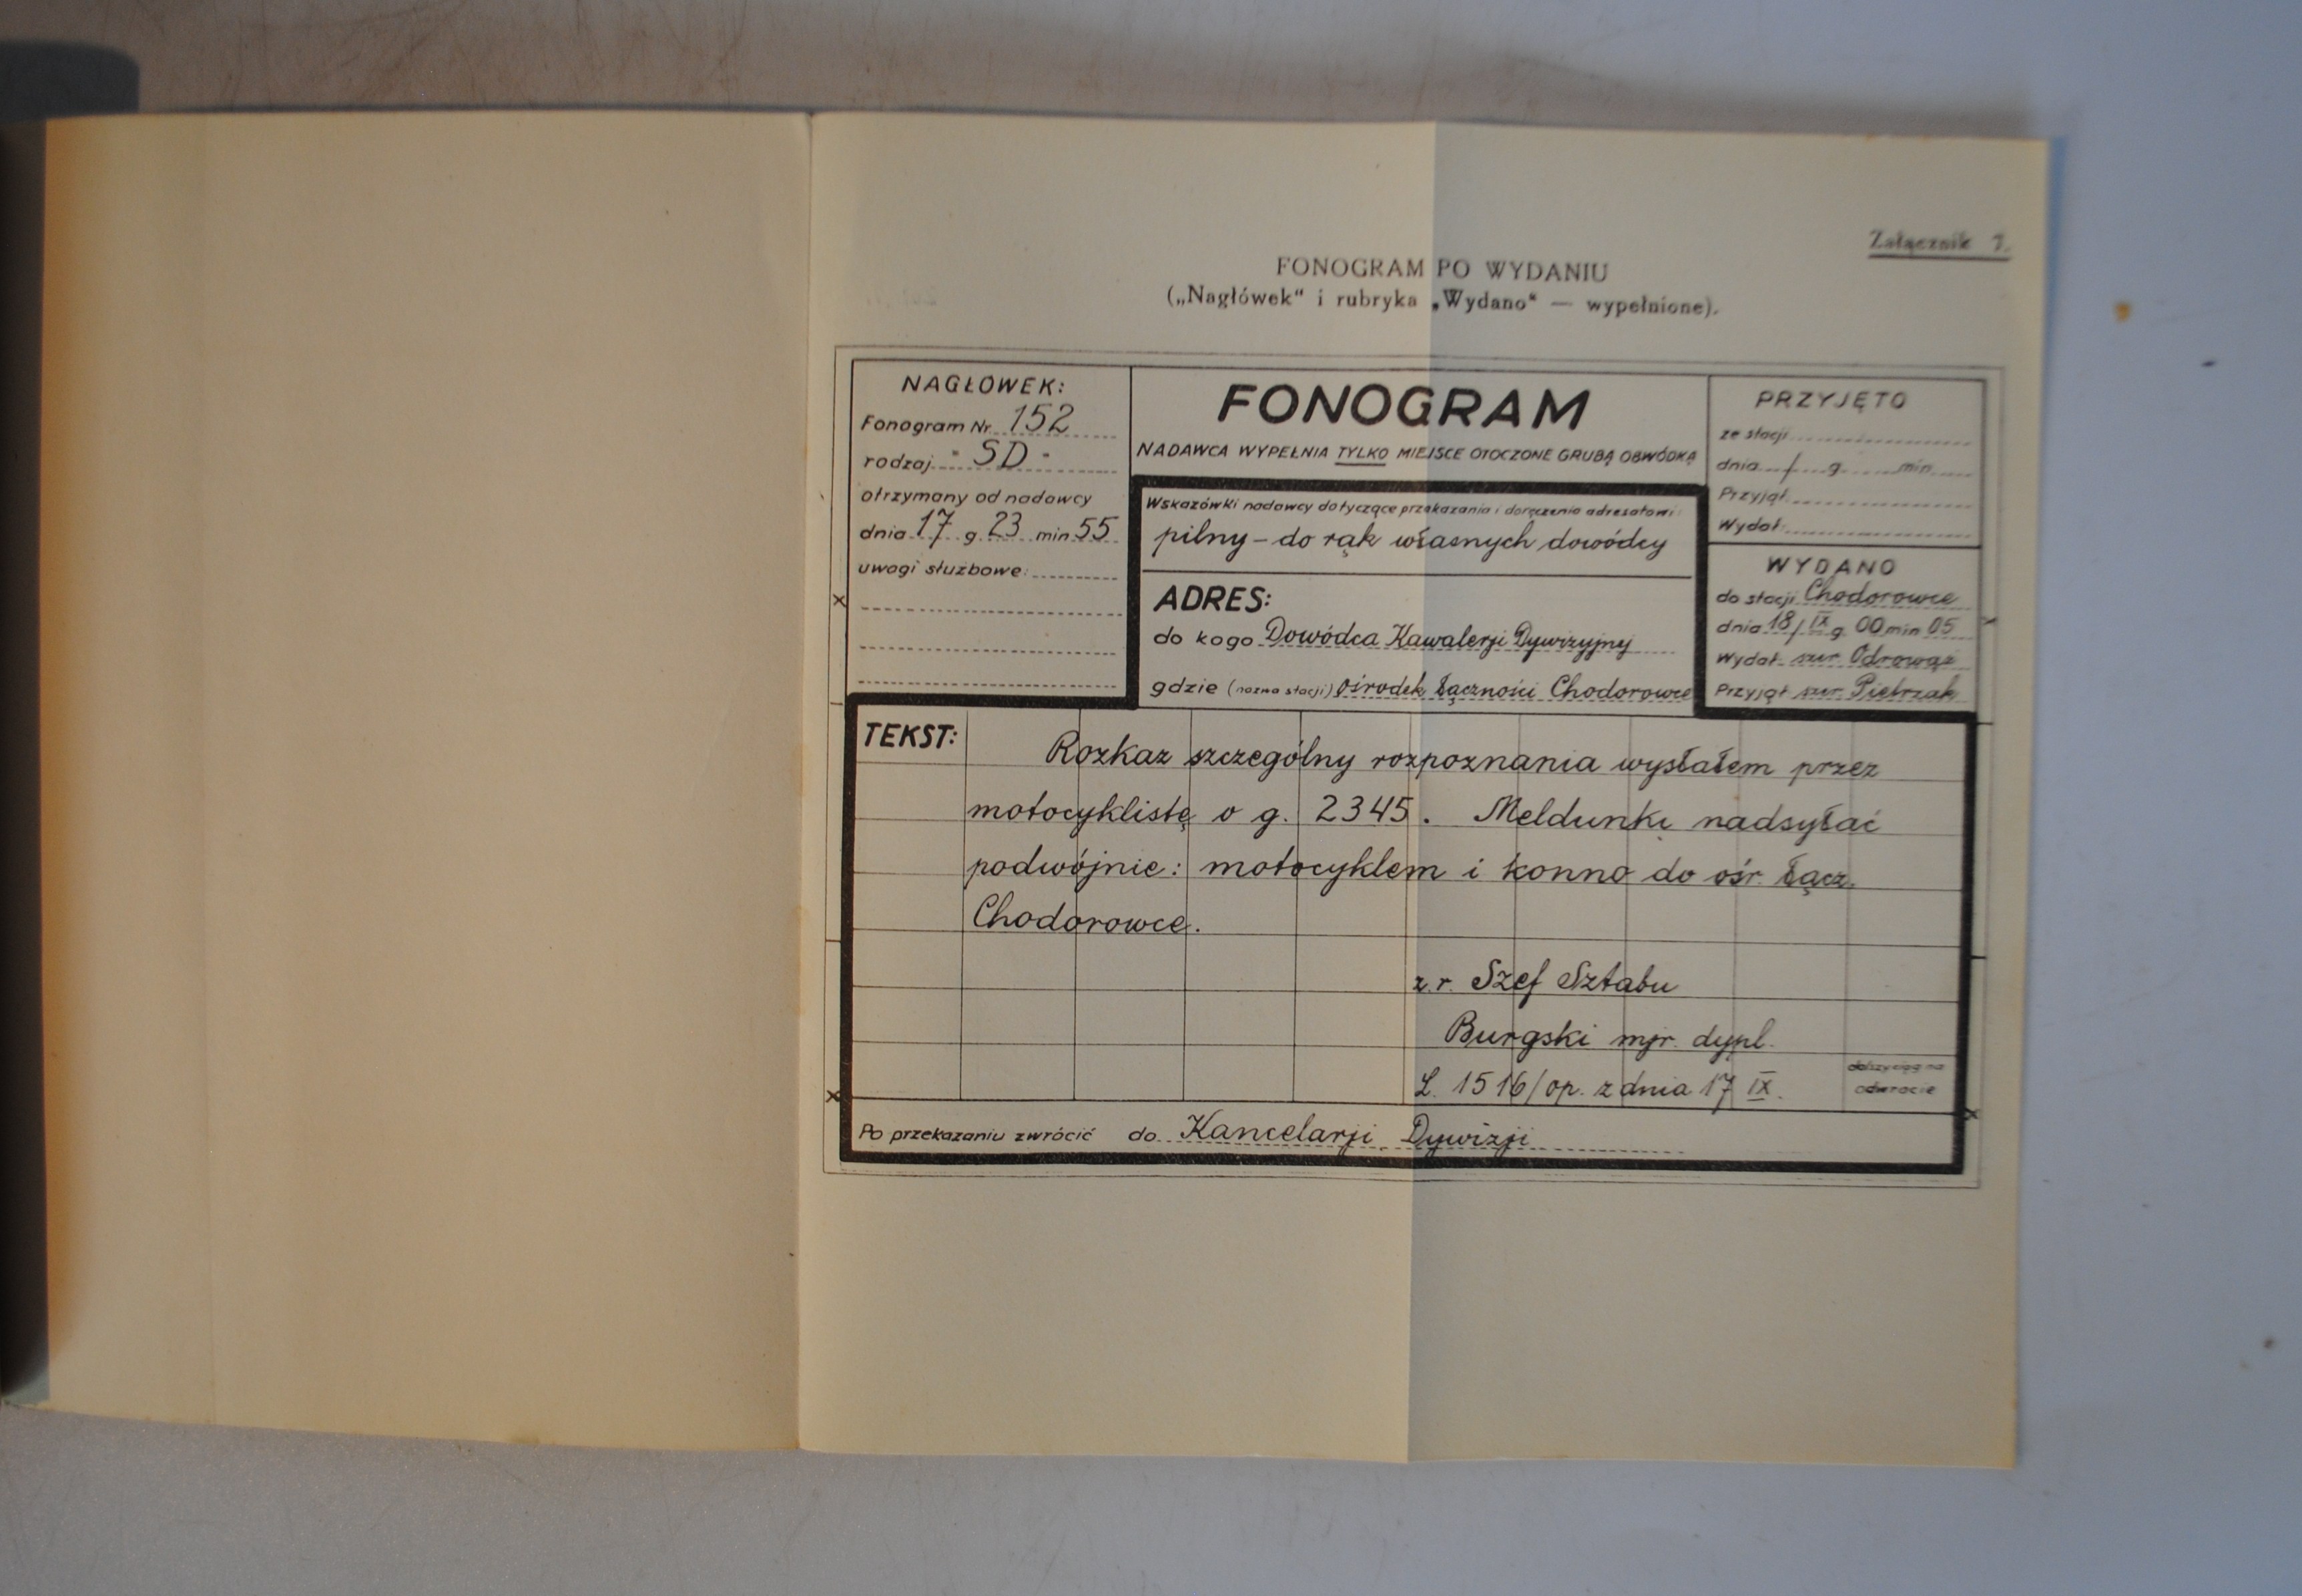 Załącznik 7.
FONOGRAM PO WYDANIU
(„Nagłówek“ i rubryka „Wydano“ — wypełnione).
NAGŁOWEK:
Fonogram Nr. 152
rodzaj "SD"
otrzymany od nadawcy
dnia 17 g. 23 min 55
uwagi służbowe:
FONOGRAM
NADAWCA WYPEŁNIA TYLKO MIEJSCE OTOCZONE GRUBĄ OBWÓDKĄ
Wskazówki nadawcy dotyczące przekazania i doręczenia adresatowi:
pilny – do rąk własnych dowódcy
ADRES:
do kogo Dowódca Kawalerji Dywizyjnej
gdzie (nazwa stacji) Ośrodek Łączności Chodorowce
PRZYJĘTO
ze stacji
dnia / g. min.
Przyjął:
Wydał:
WYDANO
do stacji Chodorowce
dnia 18/IX g. 00 min 05
Wydał szer. Odrowąż
Przyjął szer. Pietrzak
TEKST:
Rozkaz szczególny rozpoznania wysłałem przez
motocyklistę o g. 2345. Meldunki nadsyłać
podwójnie: motocyklem i konno do ośr. łącz.
Chodorowce.
z. r. Szef Sztabu
Burgski mjr. dypl.
L. 1516/op. z dnia 17 IX.
dalszy ciąg na
odwrocie
Po przekazaniu zwrócić do Kancelarji Dywizji